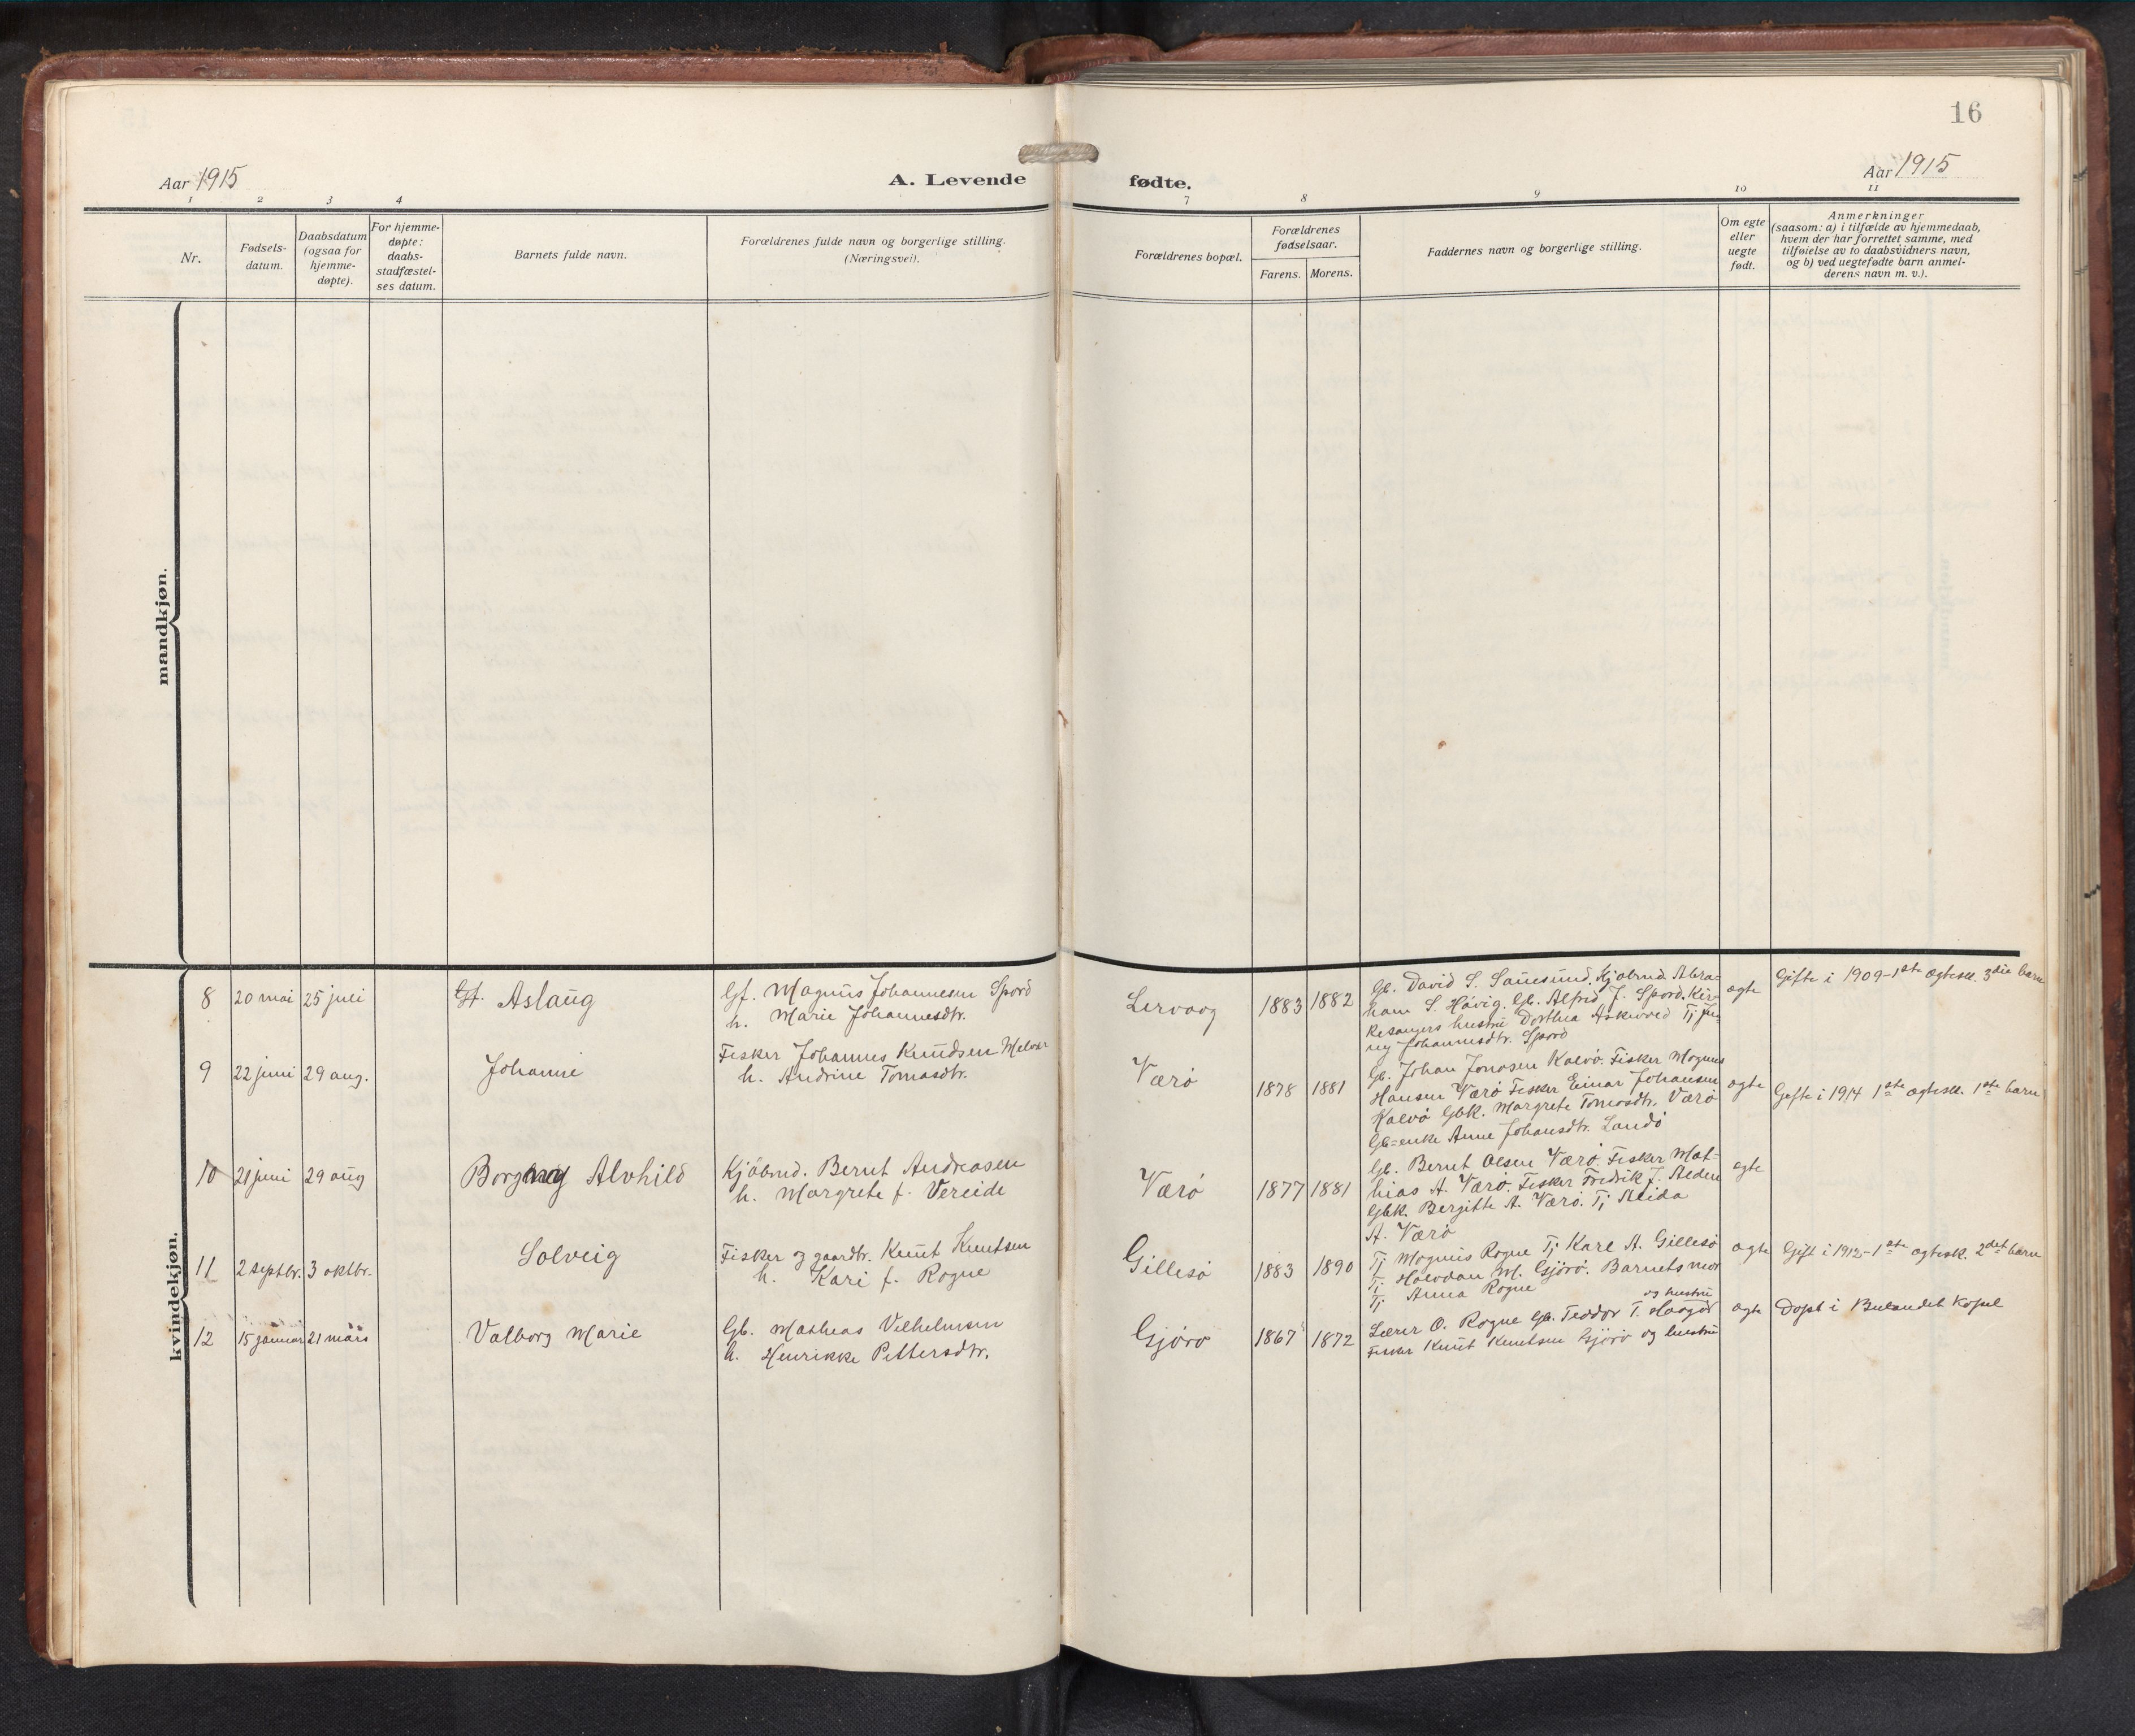 16
Aar 1915
A. Levende
fødte.
Aar 1915
1 2 3 4
7 8 9 10 11
Nr.
Fødsels-
datum.
Daabsdatum
(ogsaa for
hjemme-
døpte).
For hjemme-
døpte:
daabs-
stadfæstel-
ses datum.
Barnets fulde navn.
Forældrenes fulde navn og borgerlige stilling.
(Næringsvei).
Forældrenes bopæl.
Forældrenes
fødselsaar.
Farens. Morens.
Faddernes navn og borgerlige stilling.
Om egte
eller
uegte
født.
Anmerkninger
(saasom: a) i tilfælde av hjemmedaab,
hvem der har forrettet samme, med
tilføielse av to daabsvidners navn,
og b) ved uegtefødte barn anmel-
derens navn m. v.).
mandkjøn.
kvindekjøn.
8 20 mai 25 juli Aslaug
Gb. Magnus Johannesen Spord
h. Marie Johannesdtr.
Lervaag 1883 1882
Gb. David S. Sauesund. Kjøbmd. Abra-
ham S. Håvig. Gb. Alfred J. Spord. Kir-
kesangers hustru Dorthea Askvoved Tj
Johannesdtr. Spord
egte
Gifte i 1909 - 1ste egtesk. 3die barn
9 22 juni 29 aug. Johanne
Fisker Johannes Knudsen Melvær
h. Andrine Tomasdtr.
Værø 1878 1881
Gb. Johan Jonasen Kalvø. Fisker Magnus
Hansen Værø Fisker Einar Johansen
Kalvø Gbk. Margrete Tomasdtr. Værø
Gb=enke Anne Johansdtr. Landø
egte
Gifte i 1914 1ste egtesk. 1ste barn
10 21 juni 29 aug Borgny Alvhild
Kjøbmd. Bernt Andreasen
h. Margrete f. Vereide
Værø 1877 1881
Gb. Bernt Olsen Værø. Fisker Mat-
hias A. Værø. Fisker Fredrik J. Alden
Gbk. Bergitte A. Værø. Tj Alida
A. Værø
egte
11 2 septbr. 3 oktbr. Solveig
Fisker og gaardbr. Knut Knutsen
h. Kari f. Rogne
Gillesø 1883 1890
Tj Magnus Rogne Tj Karl A. Gillesø
Tj. Halvdan M. Gjørø. Barnets mor
Tj Anna Rogne
egte
Gift i 1912 - 1ste egtesk. 2det barn
12 15 januar 21 mars Valborg Marie
Gb. Mathias Vilhelmsen
h. Henrikke Pettersdtr.
Gjørø 1867 1872
og hustru
Lærer O. Rogne Gb. Teodor T.
Fisker Knut Knutsen Gjørø og hustru
egte
Døpt i Bulandet Kapel